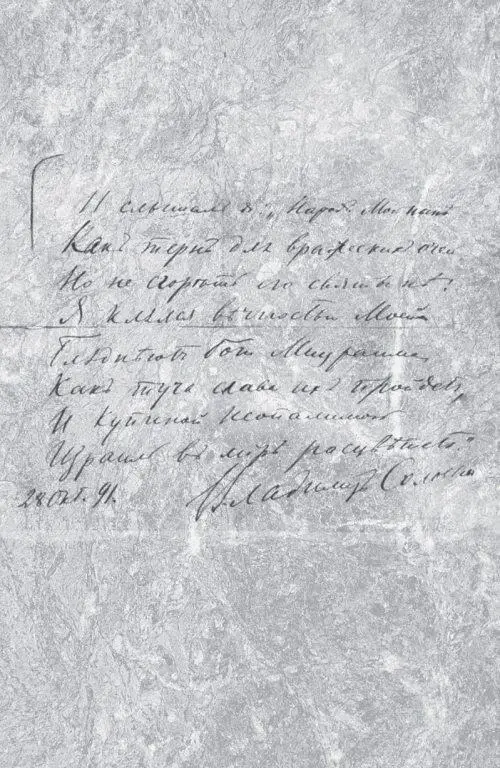 И слышалъ я: „Народъ Мой нынѣ
Какъ тернъ для вражескихъ очей
Но не сгорѣть его святынѣ:
Я клялся вѣчностью Моей
Блѣднѣютъ боги Мицраима,
Какъ туча слава ихъ пройдетъ,
И купиной неопалимою
Израиль въ мірѣ расцвѣтетъ."
28 окт. 91. Владиміръ Соловьевъ